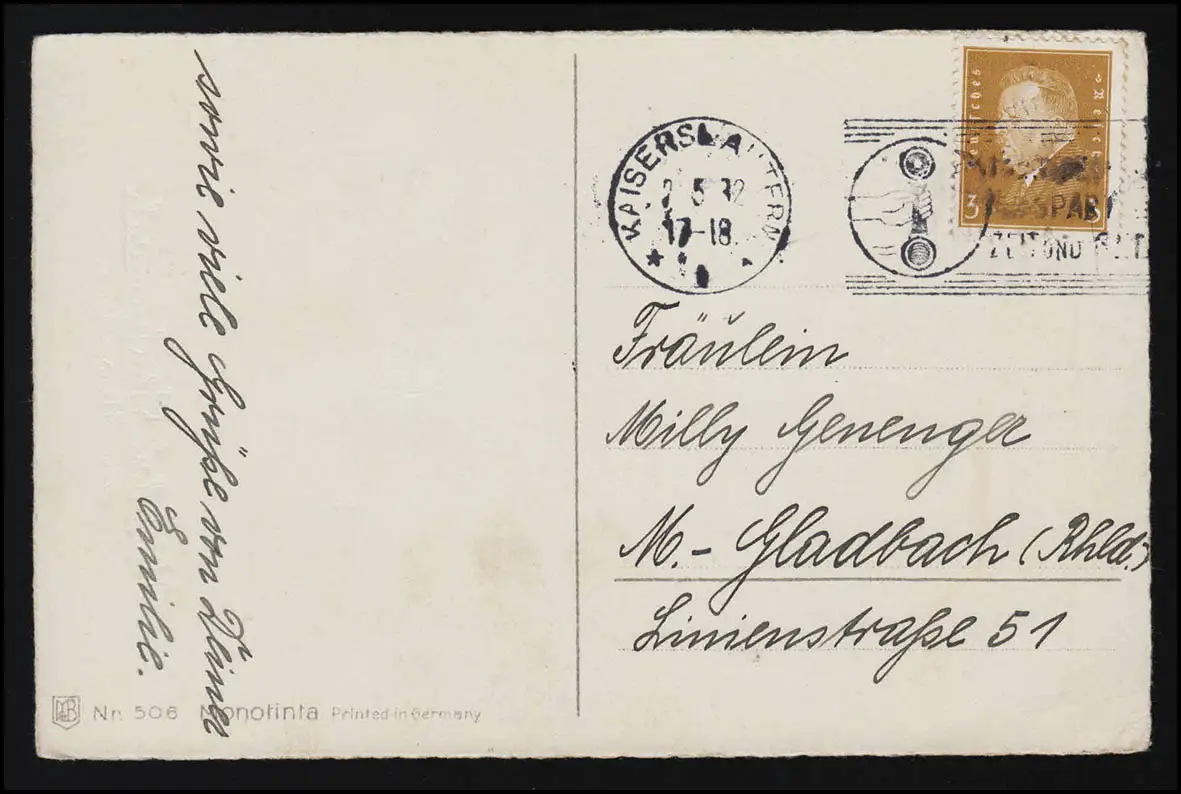 sowie viele Grüße von Deiner
Emilie.
Nr. 506 Monotinta Printed in Germany
KAISERSLAUTERN
2.5.32
17-18
3
3
SPART
ZEIT UND GELD
Fräulein
Milly Genenger
M.- Gladbach (Rhld.)
Linienstraße 51